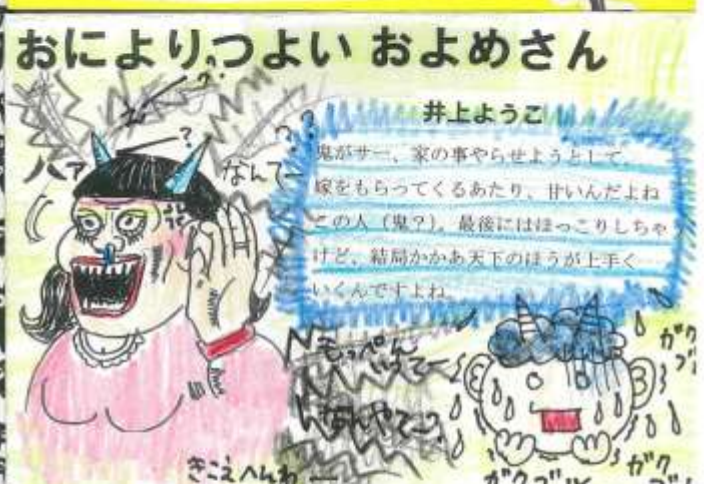 おによりつよい およめさん
井上ようこ
鬼がサー、家の事やらせようとして、
嫁をもらってくるあたり、甘いんだよね
この人（鬼？）。最後にはほっこりしちゃ
けど、結局かかあ天下のほうが上手く
いくんですよね。
ハァ
？
？
なんて
？
？
もっぺん
いうてー
なんやてー？
きこえへんわー
ガク
ブ
ガクブル
ガク
ブ